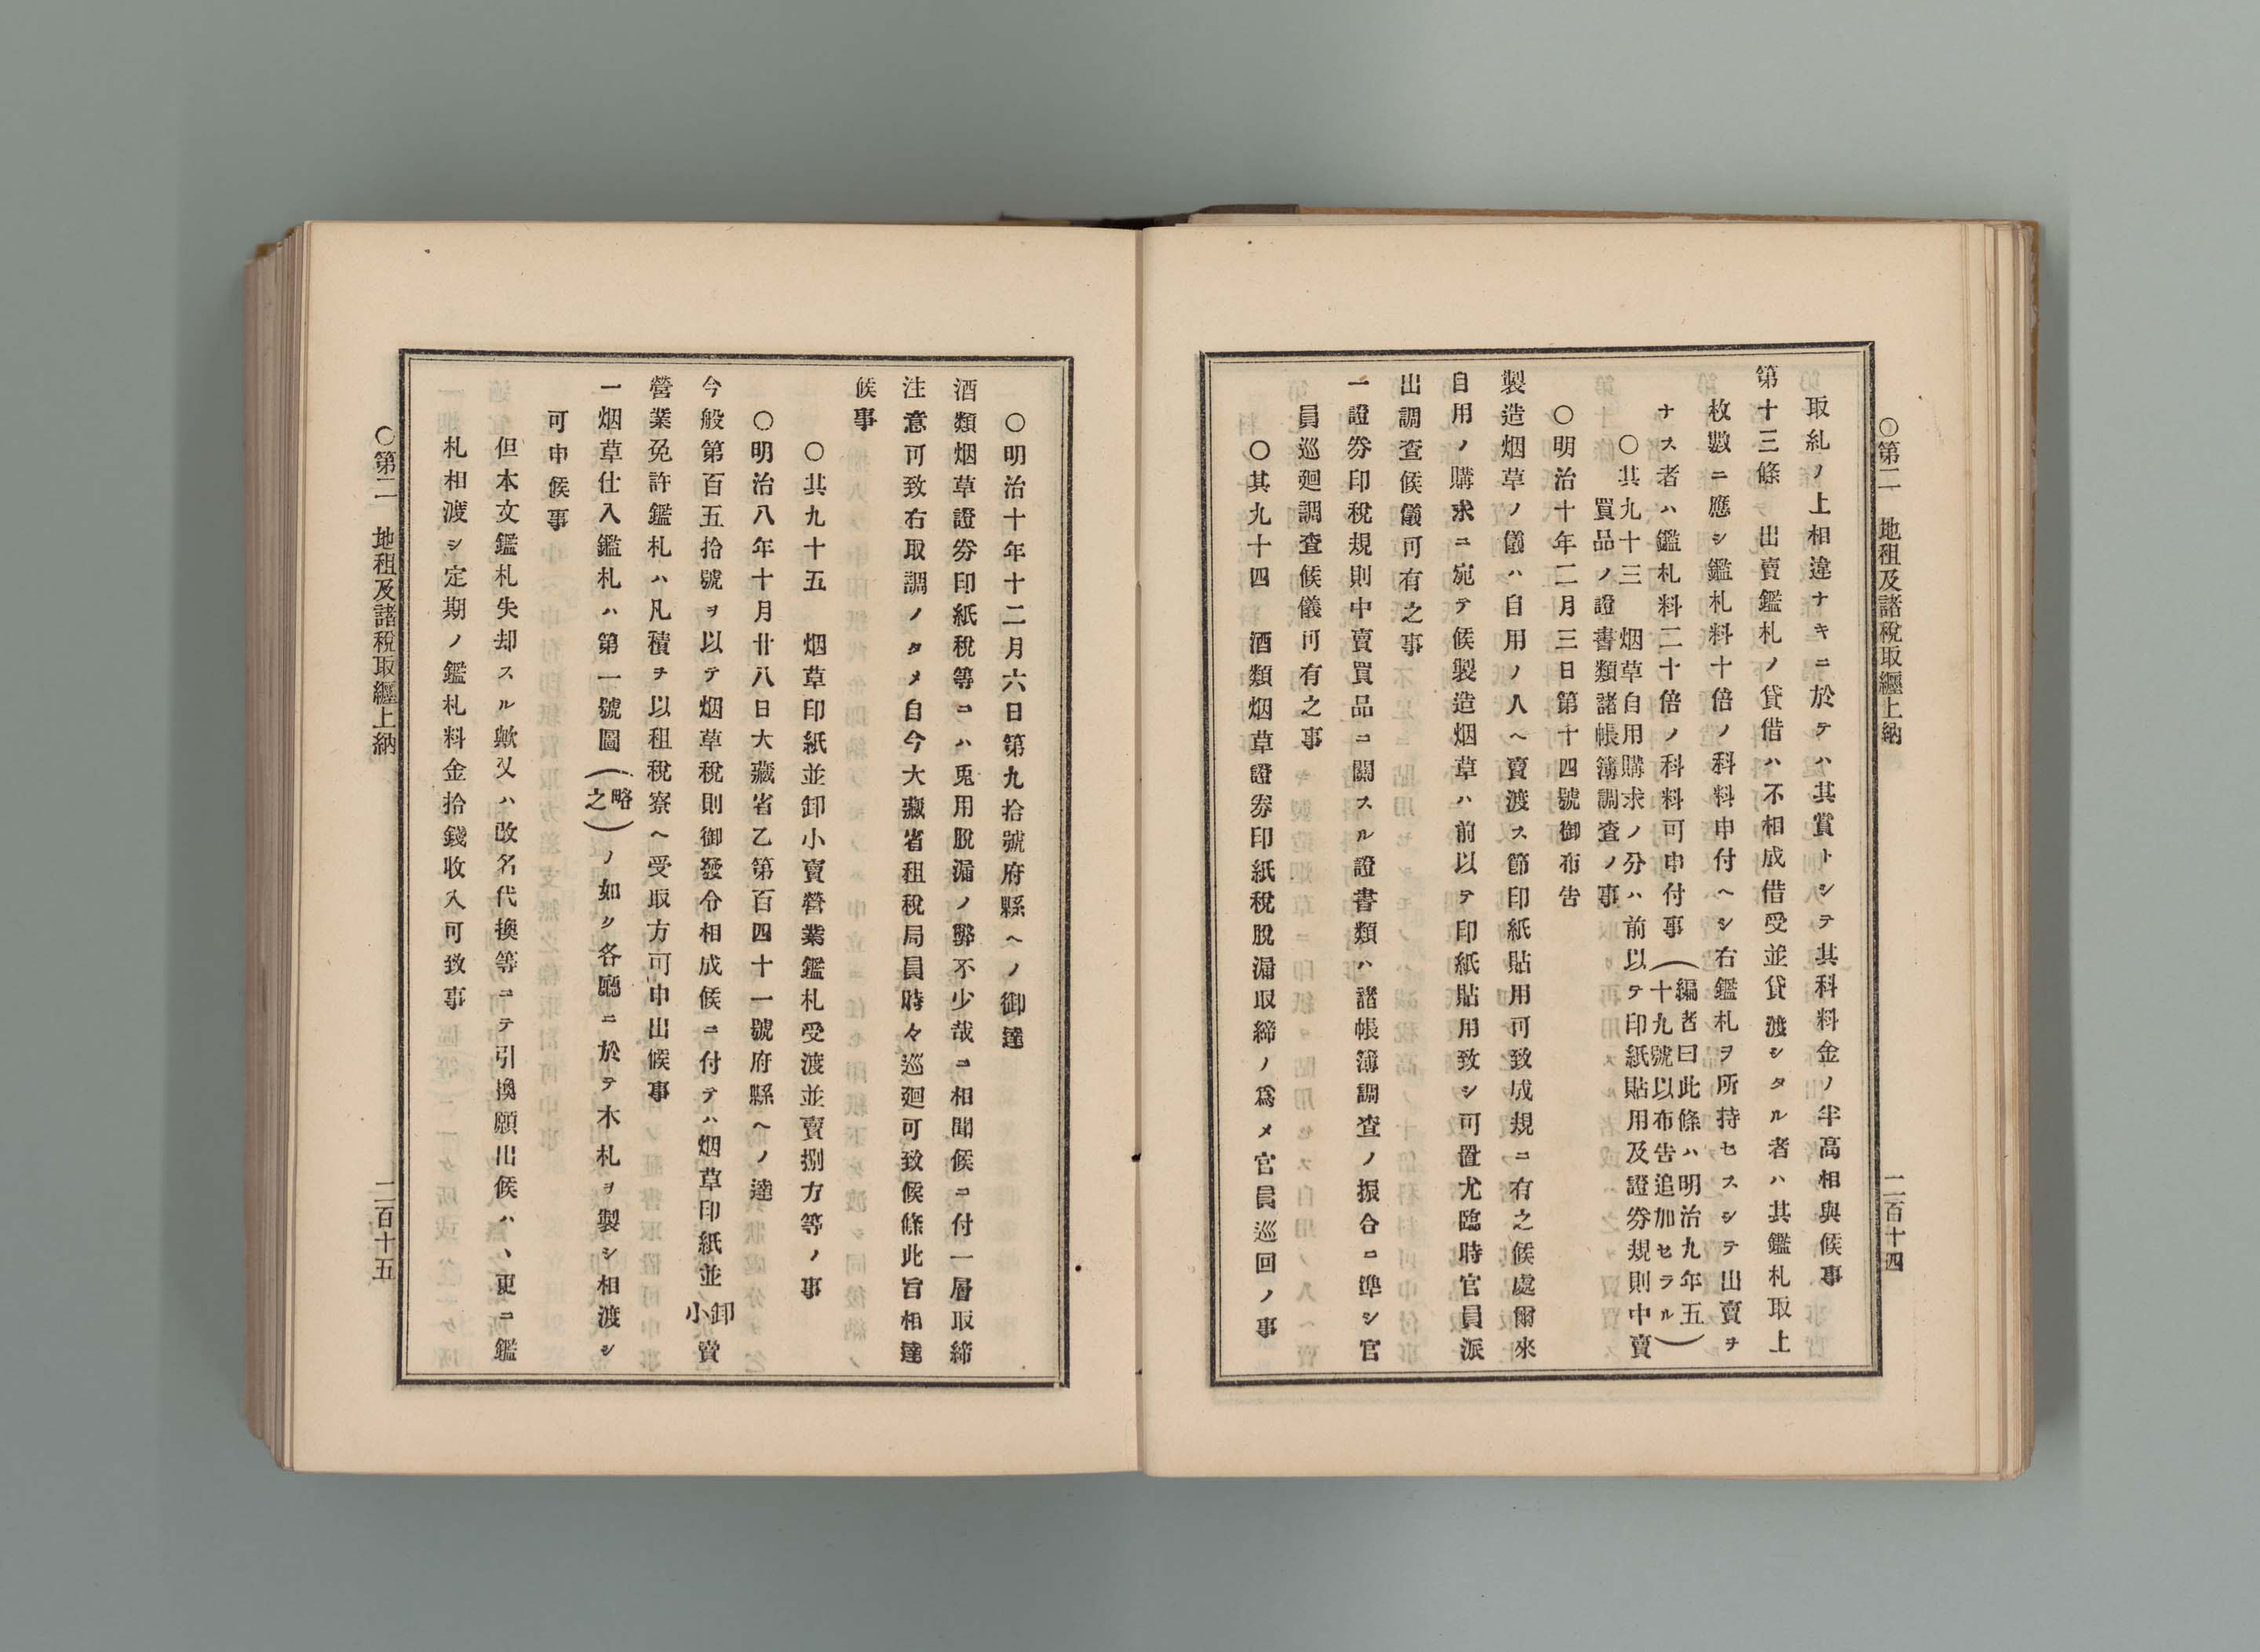 ○第二　地租及諸稅取纒上納　二百十四
取糺ノ上相違ナキニ於テハ其賞トシテ其科料金ノ半高相與候事
第十三條　出賣鑑札ノ貸借ハ不相成借受並貸渡シタル者ハ其鑑札取上
枚數ニ應シ鑑札料十倍ノ科料申付ヘシ右鑑札ヲ所持セスシテ出賣ヲ
ナス者ハ鑑札料二十倍ノ科料可申付事（編者曰此條ハ明治九年五
十九號以布告追加セラル）
○其九十三　烟草自用購求ノ分ハ前以テ印紙貼用及證券規則中賣
買品ノ證書類諸帳簿調査ノ事
○明治十年二月三日第十四號御布告
製造烟草ノ儀ハ自用ノ人ヘ賣渡ス節印紙貼用可致成規ニ有之候處爾來
自用ノ購求ニ宛テ候製造烟草ハ前以テ印紙貼用致シ可置尤臨時官員派
出調査候儀可有之事
一證券印稅規則中賣買品ニ關スル證書類ハ諸帳簿調査ノ振合ニ準シ官
員巡廻調査候儀可有之事
○其九十四　酒類烟草證券印紙稅脫漏取締ノ爲メ官員巡回ノ事
○明治十年十二月六日第九拾號府縣ヘノ御達
酒類烟草證券印紙稅等ニハ兎用脫漏ノ弊不少哉ニ相聞候ニ付一層取締
注意可致右取調ノタメ自今大藏省租稅局員時々巡廻可致候條此旨相達
候事
○其九十五　烟草印紙並卸小賣營業鑑札受渡並賣捌方等ノ事
○明治八年十月廿八日大藏省乙第百四十一號府縣ヘノ達
今般第百五拾號ヲ以テ烟草稅則御發令相成候ニ付テハ烟草印紙並卸小賣
營業免許鑑札ハ凡積ヲ以租稅寮ヘ受取方可申出候事
一烟草仕入鑑札ハ第一號圖（略之）ノ如ク各廳ニ於テ木札ヲ製シ相渡シ
可申候事
但本文鑑札失却スル歟又ハ改名代換等ニテ引換願出候ハヽ更ニ鑑
札相渡シ定期ノ鑑札料金拾錢收入可致事
○第二　地租及諸稅取纒上納　二百十五